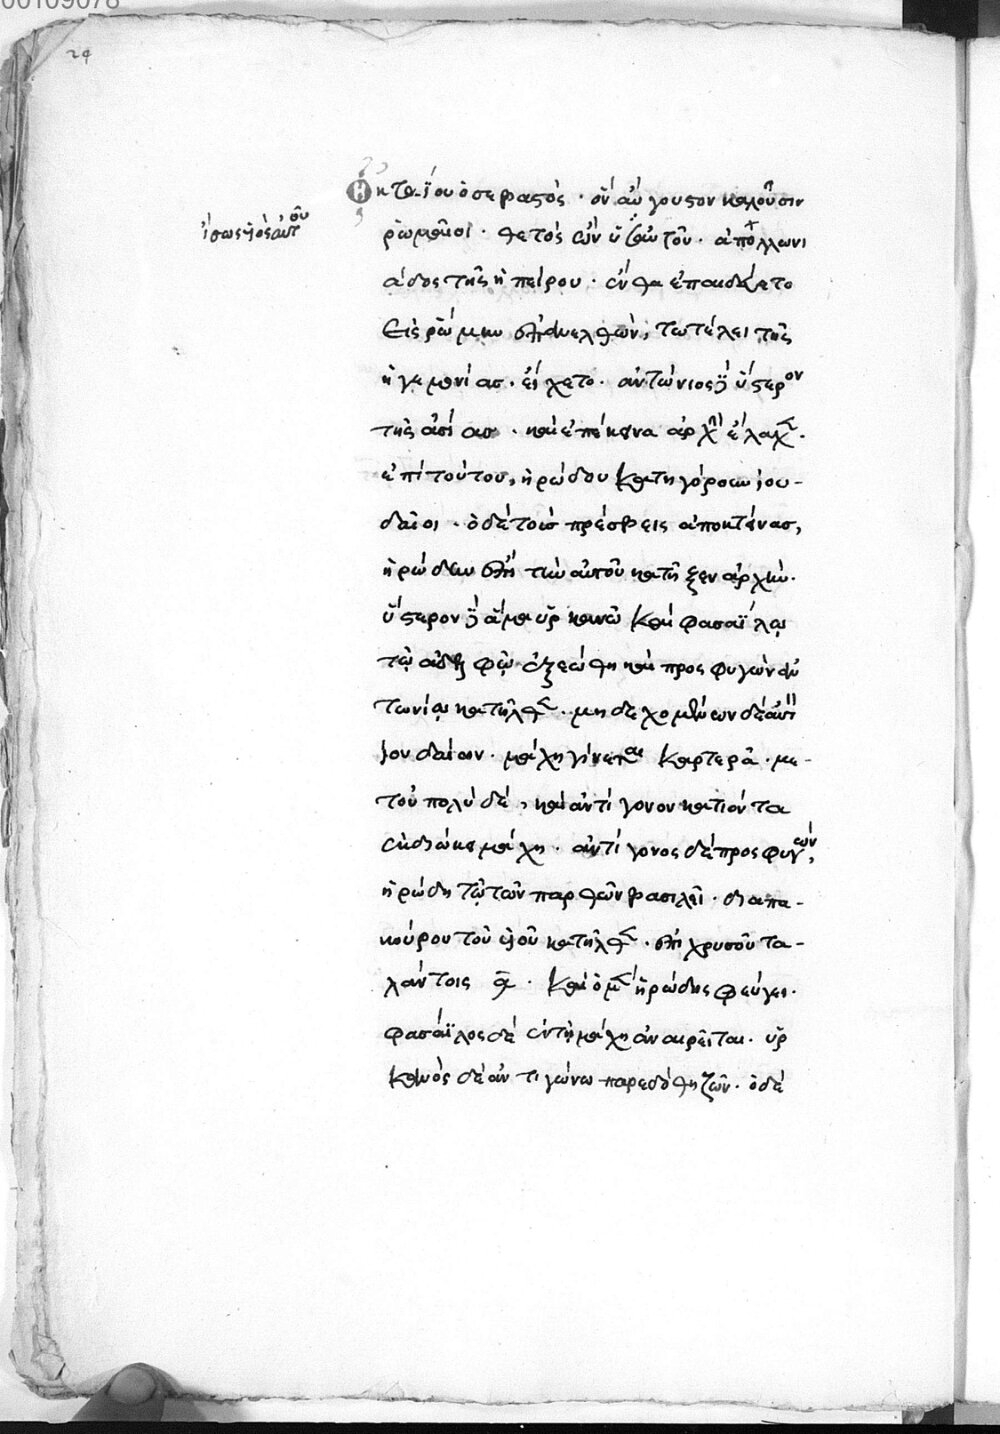 00109078
24
Ὀκτάϊος ὁ σεβαστὸς · ὃν αὔγουστον καλοῦσιν
ἴσως υἱὸς αὐτοῦ
ῥωμαῖοι · θετὸς ὢν αὐτοῦ · ἀπολλωνι
άδος τῆς ἠπείρου · ἔνθα ἐπαιδεύετο
εἰς ῥώμην ἐπανελθὼν, τῶ τέλει τῆς
ἡγεμονίας · εἴχετο · ἀντώνιος δὲ ὕστερον
τῆς ἀσίας · καὶ ἐπέκεινα ἀρχὴν ἔλαχε ·
ἐπὶ τούτου, ἡρώδου κατηγόρουν ἰου-
δαῖοι · ὁ δὲ τοὺς πρέσβεις ἀποκτένας,
ἡρώδην ἐπὶ τὴν αὐτοῦ κατῆξεν ἀρχὴν ·
ὕστερον δὲ ἅμα ὑρκανῶ καὶ φασαϊλω
τῶ ἀδελφῶ ἐξεώθη καὶ προσφυγὼν ἀν
τωνίω κατῆλθε · μὴ δεχομένων δὲ αὐτὸν
ἰουδαίων · μάχη γίνεται καρτερά · με-
τοὐπολὺ δὲ, καὶ ἀντίγονον κατιόντα
ἐκδιώκει μάχη · ἀντίγονος δὲ προσφυγὼν,
ἡρώδη τῶ τῶν παρθῶν βασιλεῖ · δια πα-
κούρου τοῦ υἱοῦ κατῆλθε · ἐπὶ χρυσοῦ τα-
λάντοις ͵α · καὶ ὁ μὲν ἡρώδης φεύγει ·
φασάϊλος δὲ ἐν τῆ μάχη ἀναιρεῖται · ὑρ
κανὸς δὲ ἀντιγώνω παρεδόθη ζῶν · ὁ δὲ